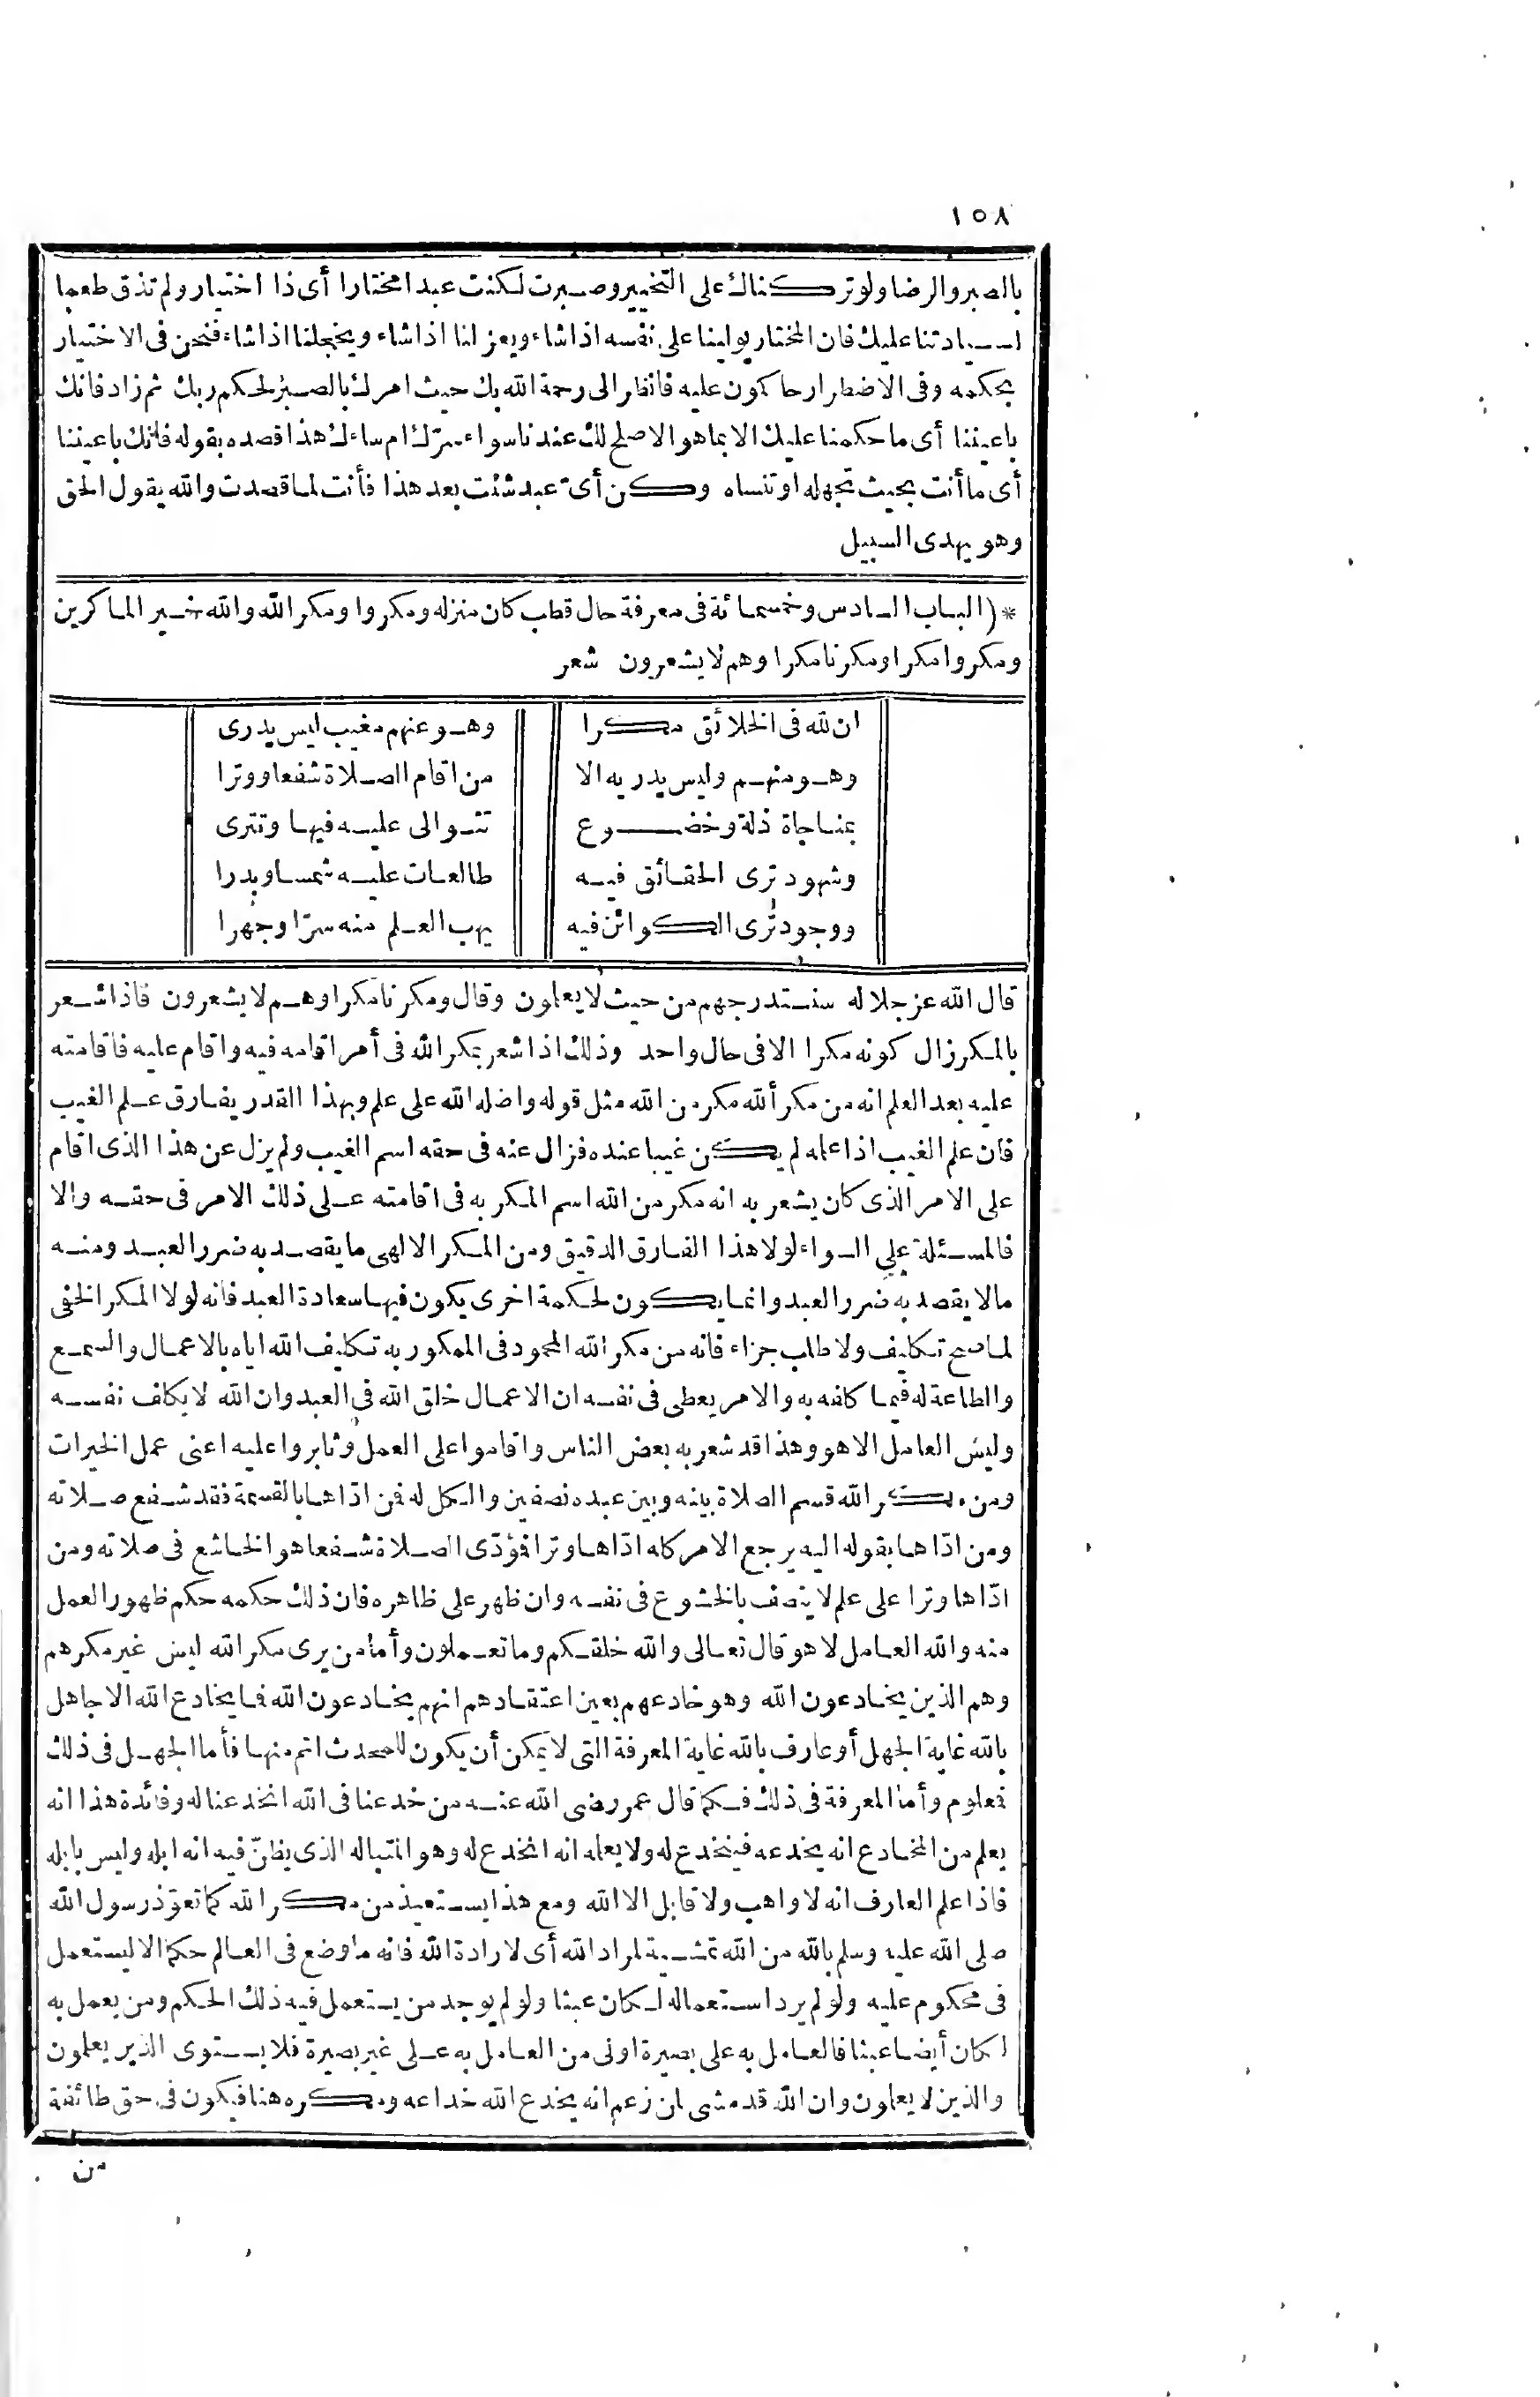 ١٥٨
بالصبر والرضا ولو تركناك على التخيير وصبرت لكنت عبدا مختارا أى ذا اختيار ولم تذق طعما
لسيادتنا عليك فان المختار يولينا على نفسه اذا شاء ويعزلنا اذا شاء ويخجلنا اذا شاء فنحن فى الاختيار
بحكمه وفى الاضطرار حاكمون عليه فانظر الى رحمة الله بك حيث امرك بالصبر لحكم ربك ثم زاد فانك
باعيننا أى ما حكمنا عليك الا بما هو الاصلح لك عندنا سواء سرّك ام ساءك هذا قصده بقوله فانك باعيننا
أى ما أنت بحيث تجهله او تنساه وكن أىّ عبد شئت بعد هذا فأنت لما قصدت والله يقول الحق
وهو يهدى السبيل
*(الباب السادس وخمسمائة فى معرفة حال قطب كان منزله ومكروا ومكر الله والله خير الماكرين
ومكروا مكرا ومكرنا مكرا وهم لا يشعرون شعر
ان لله فى الخلائق مكرا وهو عنهم مغيب ليس يدرى
وهو منهم وليس يدريه الا من اقام الصلاة شفعا ووترا
بمناجاة ذلة وخضوع تتوالى عليه فيها وتترى
وشهود ترى الحقائق فيه طالعات عليه شمسا وبدرا
ووجود ترى الكوائن فيه يهب العلم منه سرّا وجهرا
قال الله عز جلاله سنستدرجهم من حيث لا يعلمون وقال ومكرنا مكرا وهم لا يشعرون فاذا شعر
بالمكر زال كونه مكرا الا فى حال واحد وذلك اذا شعر بمكر الله فى أمر اقامه فيه واقام عليه فاقامته
عليه بعد العلم انه من مكر ألله مكر من الله مثل قوله واضله الله على علم وبهذا القدر يفارق علم الغيب
فان علم الغيب اذا علمه لم يكن غيبا عنده فزال عنه فى حقه اسم الغيب ولم يزل عن هذا الذى اقام
على الامر الذى كان يشعر به انه مكر من الله اسم المكر به فى اقامته على ذلك الامر فى حقه والا
فالمسئلة على السواء لولا هذا الفارق الدقيق ومن المكر الالهى ما يقصد به ضرر العبد ومنه
ما لا يقصد به ضرر العبد وانما يكون لحكمة اخرى يكون فيها سعادة العبد فانه لولا المكر الخفى
لما صح تكليف ولا طلب جزاء فانه من مكر الله المحمود فى الممكور به تكليف الله اياه بالاعمال والسمع
والطاعة له فيما كلفه به والامر يعطى فى نفسه ان الاعمال خلق الله فى العبد وان الله لا يكلف نفسه
وليس العامل الا هو وهذا قد شعر به بعض الناس واقاموا على العمل وثابروا عليه اعنى عمل الخيرات
ومن مكر الله قسم الصلاة بينه وبين عبده نصفين والكل له فمن ادّاها بالقسمة فقد شفع صلاته
ومن ادّاها بقوله اليه يرجع الامر كله ادّاها وترا فمؤدّى الصلاة شفعا هو الخاشع فى صلاته ومن
ادّاها وترا على علم لا يتصف بالخشوع فى نفسه وان ظهر على ظاهره فان ذلك حكمه حكم ظهور العمل
منه والله العامل لا هو قال تعالى والله خلقكم وما تعملون وأما من يرى مكر الله ليس غير مكرهم
وهم الذين يخادعون الله وهو خادعهم بعين اعتقادهم انهم يخادعون الله فما يخادع الله الا جاهل
بالله غاية الجهل أو عارف بالله غاية المعرفة التى لا يمكن أن يكون للمحدث اتم منها فأما الجهل فى ذلك
فمعلوم وأما المعرفة فى ذلك فكما قال عمر رضى الله عنه من خدعنا فى الله انخدعنا له وفائدة هذا انه
يعلم من المخادع انه يخدعه فينخدع له ولا يعلمه انه انخدع له وهو المتباله الذى يظنّ فيه انه ابله وليس بابله
فاذا علم العارف انه لا واهب ولا قابل الا الله ومع هذا يستعيذ من مكر الله كما تعوّذ رسول الله
صلى الله عليه وسلم بالله من الله تمشية لمراد الله أى لارادة الله فانه ما وضع فى العالم حكما الا ليستعمل
فى محكوم عليه ولو لم يرد استعماله لكان عبثا ولو لم يوجد من يستعمل فيه ذلك الحكم ومن يعمل به
لكان أيضا عبثا فالعامل به على بصيرة اولى من العامل به على غير بصيرة فلا يستوى الذين يعلمون
والذين لا يعلمون وان الله قد مشى لمن زعم انه يخدع الله خداعه ومكره هنا فيكون فى حق طائفة
من